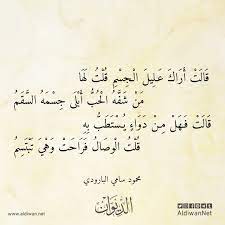 قَالَتْ أَرَاكَ عَلِيلَ الْجِسْمِ قُلْتُ لَهَا
مَنْ شَفَّهُ الْحُبُّ أَبْلَى جِسْمَهُ السَّقَمُ
قَالَتْ فَهَلْ مِنْ دَوَاءٍ يُسْتَطَبُّ بِهِ
قُلْتُ الْوِصَالُ فَرَاحَتْ وَهْيَ تَبْتَسِمُ
محمود سامي البارودي
الديوان
www.aldiwan.net
AldiwanNet